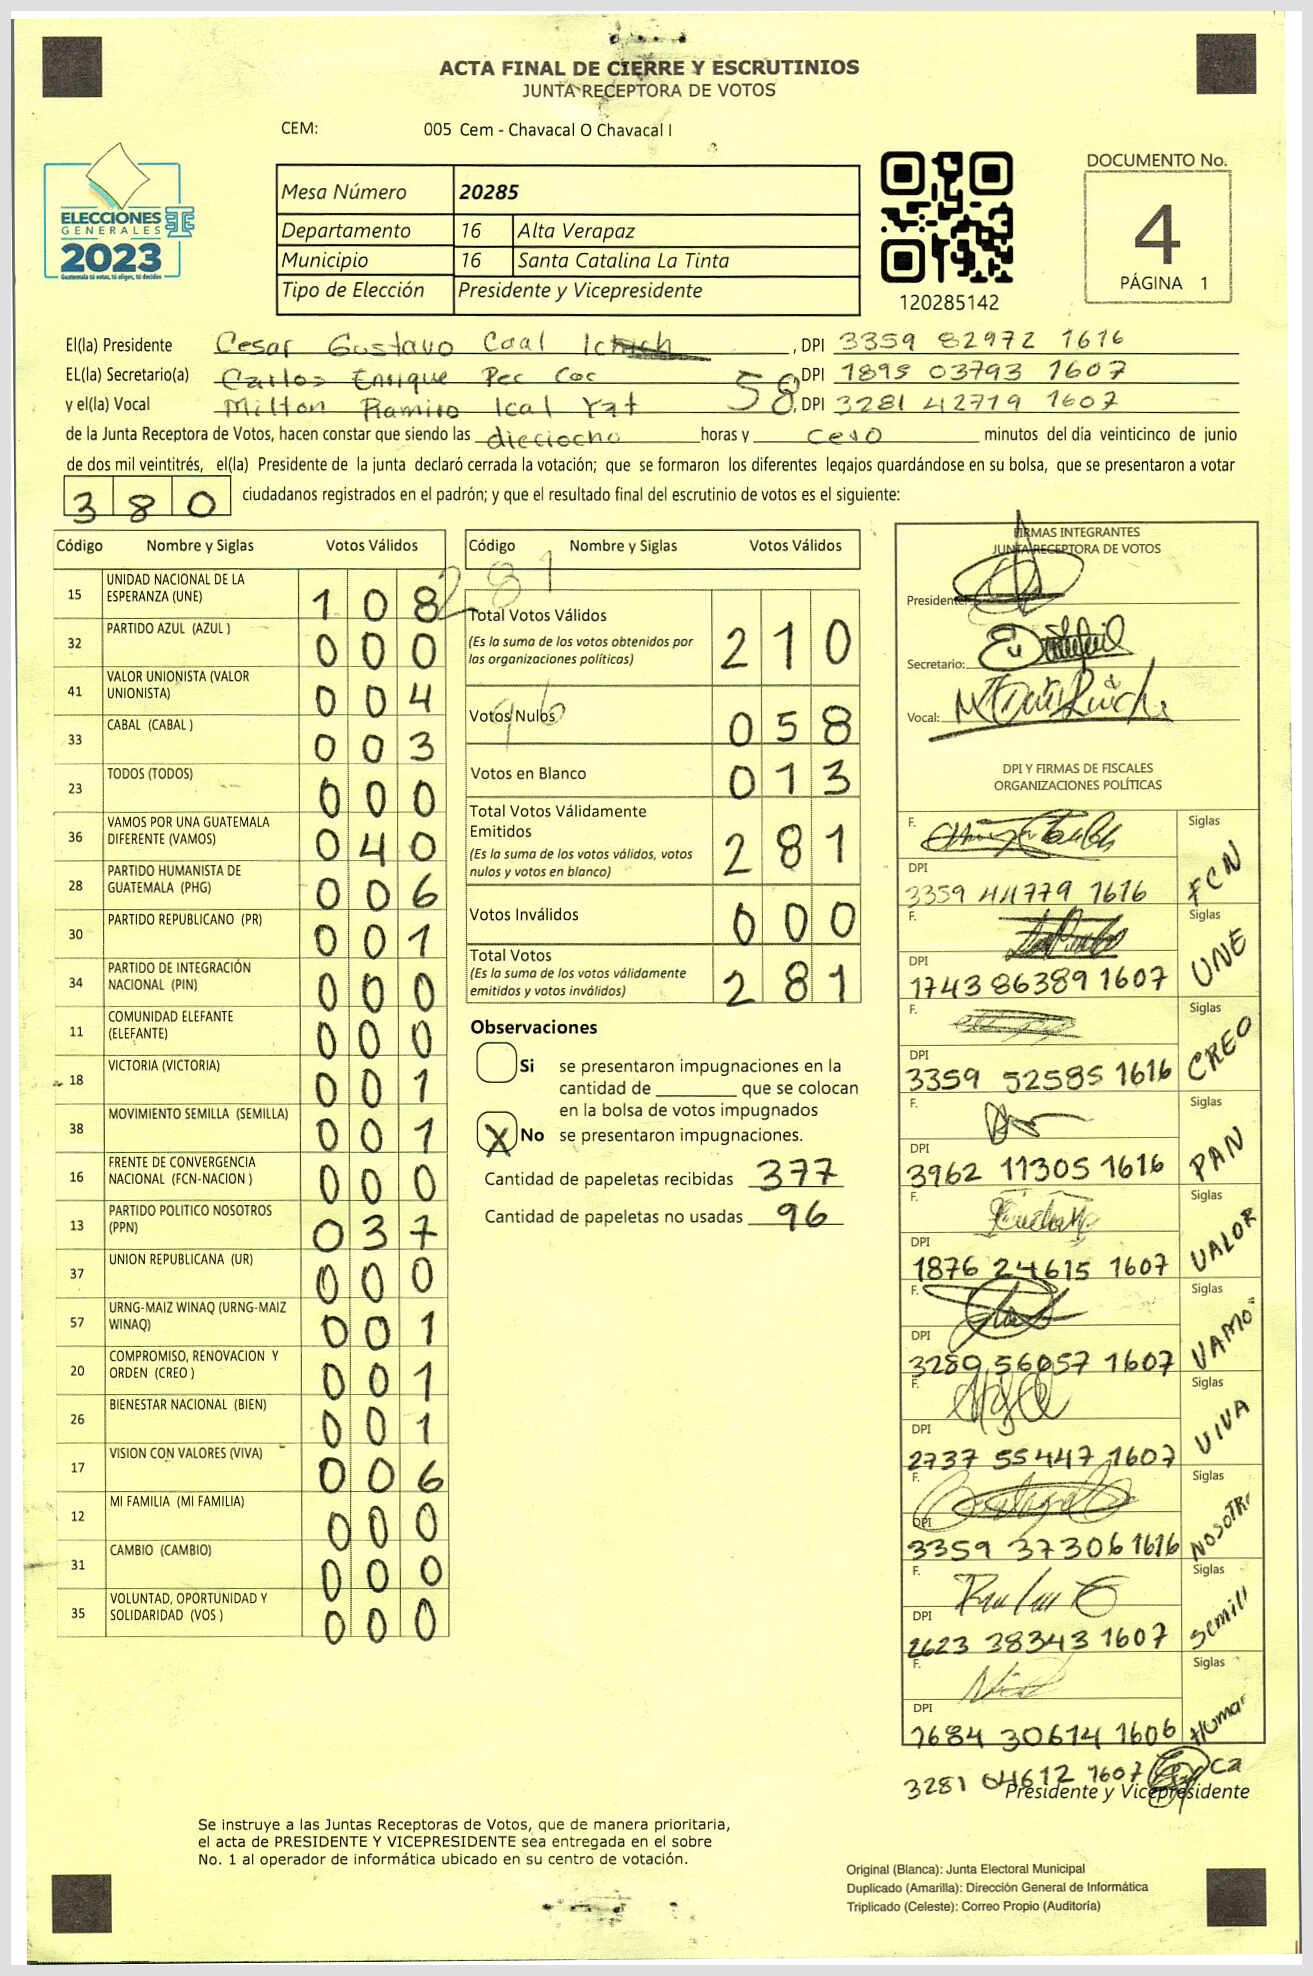 ACTA FINAL DE CIERRE Y ESCRUTINIOS
JUNTA RECEPTORA DE VOTOS
CEM: 005 Cem - Chavacal O Chavacal I
ELECCIONES
GENERALES
2023
Guatemala tú votas, tú eliges, tú decides
Mesa Número 20285
Departamento 16 Alta Verapaz
Municipio 16 Santa Catalina La Tinta
Tipo de Elección Presidente y Vicepresidente
120285142
DOCUMENTO No.
4
PÁGINA 1
El(la) Presidente Cesar Gustavo Caal , DPI 3359 82972 1616
EL(la) Secretario(a) Carlos Enrique Pec Coc DPI 1895 03793 1607
y el(la) Vocal Milton Ramiro Ical Yat 58, DPI 3281 42719 1607
de la Junta Receptora de Votos, hacen constar que siendo las dieciocho horas y cero minutos del día veinticinco de junio
de dos mil veintitrés, el(la) Presidente de la junta declaró cerrada la votación; que se formaron los diferentes legajos quardándose en su bolsa, que se presentaron a votar
380 ciudadanos registrados en el padrón; y que el resultado final del escrutinio de votos es el siguiente:
Código Nombre y Siglas Votos Válidos
15 UNIDAD NACIONAL DE LA ESPERANZA (UNE) 1 0 8
32 PARTIDO AZUL (AZUL ) 0 0 0
41 VALOR UNIONISTA (VALOR UNIONISTA) 0 0 4
33 CABAL (CABAL ) 0 0 3
23 TODOS (TODOS) 0 0 0
36 VAMOS POR UNA GUATEMALA DIFERENTE (VAMOS) 0 4 0
28 PARTIDO HUMANISTA DE GUATEMALA (PHG) 0 0 6
30 PARTIDO REPUBLICANO (PR) 0 0 1
34 PARTIDO DE INTEGRACIÓN NACIONAL (PIN) 0 0 0
11 COMUNIDAD ELEFANTE (ELEFANTE) 0 0 0
18 VICTORIA (VICTORIA) 0 0 1
38 MOVIMIENTO SEMILLA (SEMILLA) 0 0 1
16 FRENTE DE CONVERGENCIA NACIONAL (FCN-NACION ) 0 0 0
13 PARTIDO POLITICO NOSOTROS (PPN) 0 3 7
37 UNION REPUBLICANA (UR) 0 0 0
57 URNG-MAIZ WINAQ (URNG-MAIZ WINAQ) 0 0 1
20 COMPROMISO, RENOVACION Y ORDEN (CREO ) 0 0 1
26 BIENESTAR NACIONAL (BIEN) 0 0 1
17 VISION CON VALORES (VIVA) 0 0 6
12 MI FAMILIA (MI FAMILIA) 0 0 0
31 CAMBIO (CAMBIO) 0 0 0
35 VOLUNTAD, OPORTUNIDAD Y SOLIDARIDAD (VOS ) 0 0 0
Código Nombre y Siglas Votos Válidos
281
Total Votos Válidos 2 1 0
(Es la suma de los votos obtenidos por
las organizaciones políticas)
Votos Nulos 96 0 5 8
Votos en Blanco 0 1 3
Total Votos Válidamente
Emitidos 2 8 1
(Es la suma de los votos válidos, votos
nulos y votos en blanco)
Votos Inválidos 0 0 0
Total Votos
(Es la suma de los votos válidamente
emitidos y votos inválidos) 2 8 1
Observaciones
Si se presentaron impugnaciones en la
cantidad de ________ que se colocan
en la bolsa de votos impugnados
X No se presentaron impugnaciones.
Cantidad de papeletas recibidas 377
Cantidad de papeletas no usadas 96
FIRMAS INTEGRANTES
JUNTA RECEPTORA DE VOTOS
Presidente:
Secretario:
Vocal:
DPI Y FIRMAS DE FISCALES
ORGANIZACIONES POLÍTICAS
F. Siglas
DPI
3359 44779 1616 FCN
F. Siglas
DPI
1743 86389 1607 UNE
F. Siglas
DPI
3359 52585 1616 CREO
F. Siglas
DPI
3962 11305 1616 PAN
F. Siglas
DPI
1876 24615 1607 VALOR
F. Siglas
DPI
3289 56057 1607 VAMO
F. Siglas
DPI
2737 55447 1607 VIVA
F. Siglas
DPI
3359 37306 1616 NOSOTR
F. Siglas
DPI
2623 38343 1607 Semill
F. Siglas
DPI
1684 30614 1606 Huma
3281 04612 1607 Ca
Presidente y Vicepresidente
Se instruye a las Juntas Receptoras de Votos, que de manera prioritaria,
el acta de PRESIDENTE Y VICEPRESIDENTE sea entregada en el sobre
No. 1 al operador de informática ubicado en su centro de votación.
Original (Blanca): Junta Electoral Municipal
Duplicado (Amarilla): Dirección General de Informática
Triplicado (Celeste): Correo Propio (Auditoría)